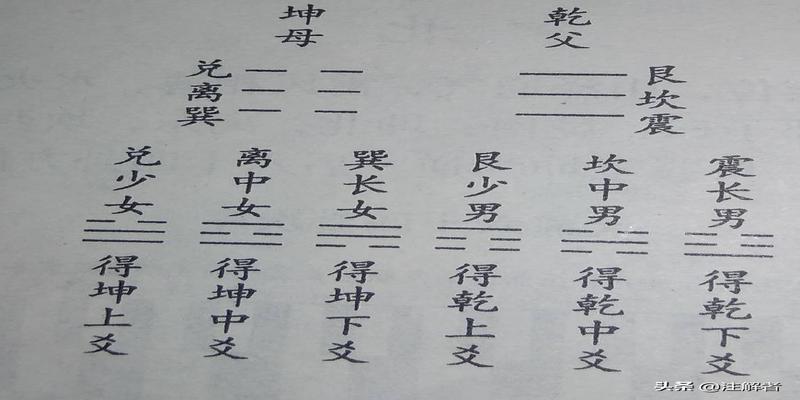 乾父
坤母
艮坎震
兑离巽
震长男
得乾下爻
坎中男
得乾中爻
艮少男
得乾上爻
巽长女
得坤下爻
离中女
得坤中爻
兑少女
得坤上爻
头条 @注解者